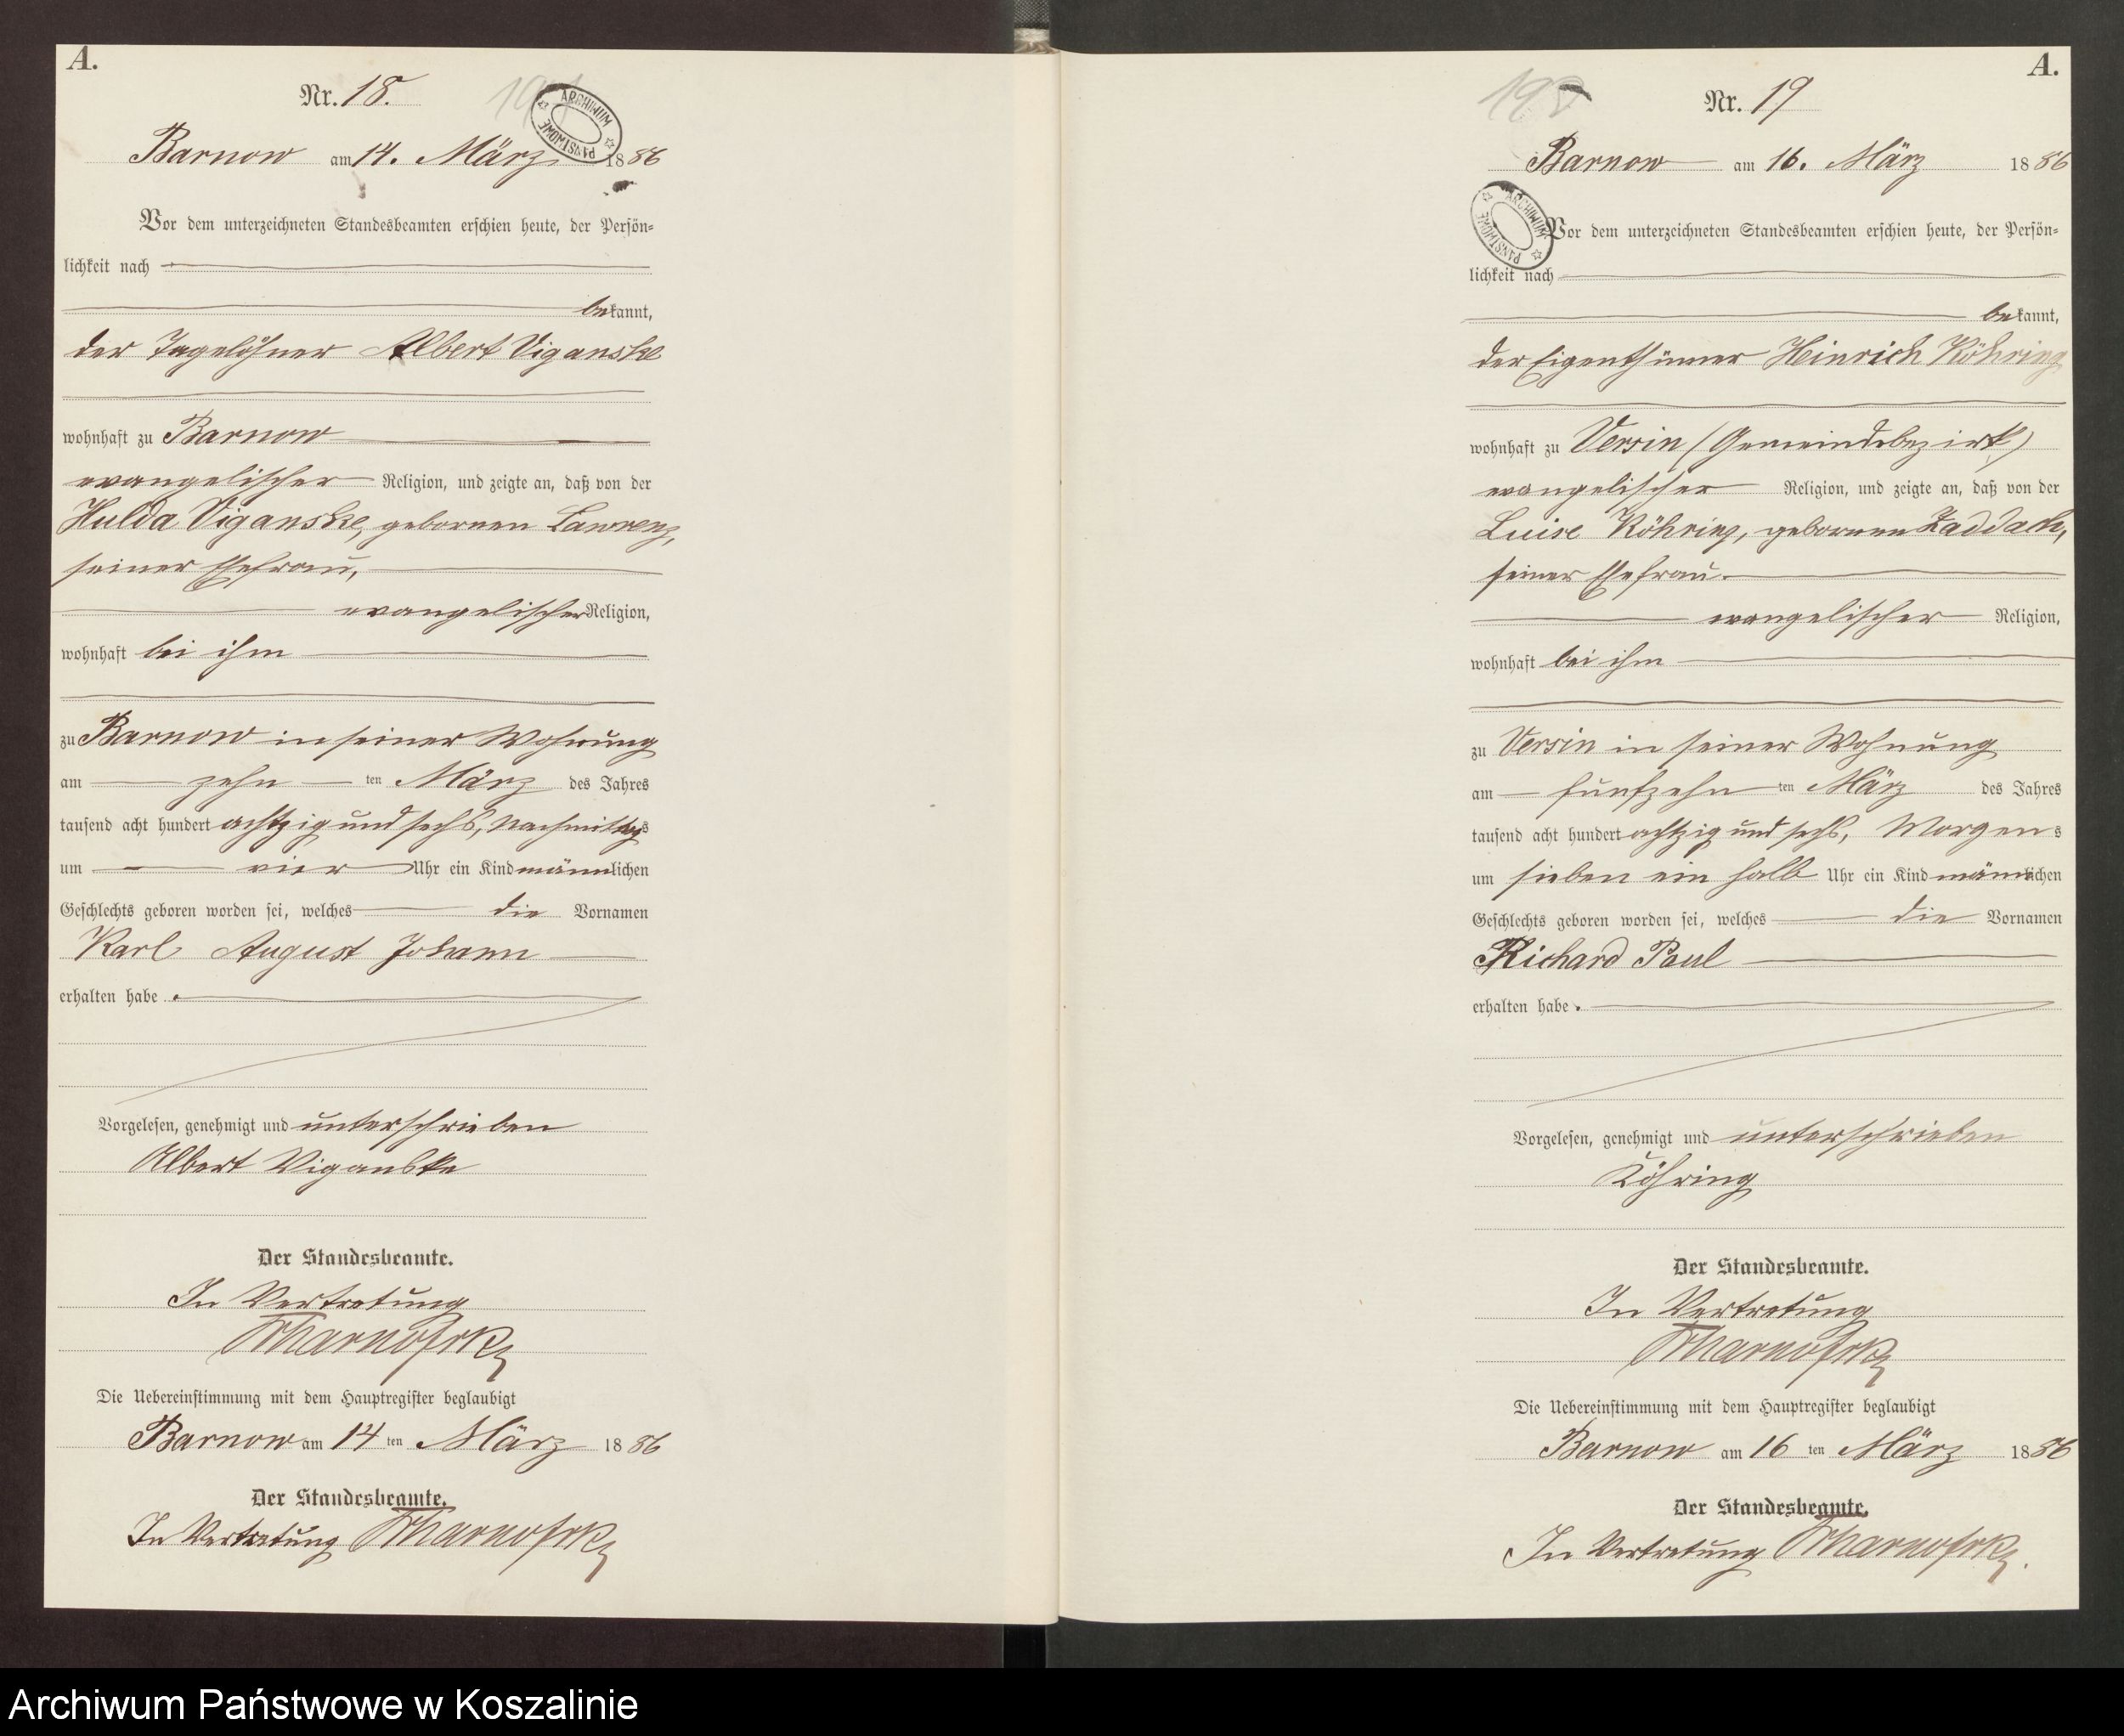 A.
Nr. 18.
ARCHIWUM PAŃSTWOWE
Barnow am 14. März 1886
Vor dem unterzeichneten Standesbeamten erschien heute, der Persön=
lichkeit nach
bekannt,
der Tagelöhner Albert Viganske
wohnhaft zu Barnow
evangelischer Religion, und zeigte an, daß von der
Hulda Viganske, gebornen Lawrenz,
seiner Ehefrau,
evangelischer Religion,
wohnhaft bei ihm
zu Barnow in seiner Wohnung
am zehn ten März des Jahres
tausend acht hundert achtzig und sechs, Nachmittags
um vier Uhr ein Kind männlichen
Geschlechts geboren worden sei, welches die Vornamen
Karl August Johann
erhalten habe.
Vorgelesen, genehmigt und unterschrieben
Albert Viganske
Der Standesbeamte.
In Vertretung
Die Uebereinstimmung mit dem Hauptregister beglaubigt
Barnow am 14 ten März 1886
Der Standesbeamte.
In Vertretung
A.
Nr. 19
Barnow am 16. März 1886
ARCHIWUM PAŃSTWOWE
Vor dem unterzeichneten Standesbeamten erschien heute, der Persön=
lichkeit nach
bekannt,
der Eigenthümer Hinrich Köhring
wohnhaft zu Versin (Gemeindebezirk)
evangelischer Religion, und zeigte an, daß von der
Luise Köhring, gebornen Zaddach,
seiner Ehefrau.
evangelischer Religion,
wohnhaft bei ihm
zu Versin in seiner Wohnung
am fünfzehn ten März des Jahres
tausend acht hundert achtzig und sechs, Morgens
um sieben ein halb Uhr ein Kind männlichen
Geschlechts geboren worden sei, welches die Vornamen
Richard Paul
erhalten habe.
Vorgelesen, genehmigt und unterschrieben
Köhring
Der Standesbeamte.
In Vertretung
Die Uebereinstimmung mit dem Hauptregister beglaubigt
Barnow am 16 ten März 1886
Der Standesbeamte.
In Vertretung
Archiwum Państwowe w Koszalinie